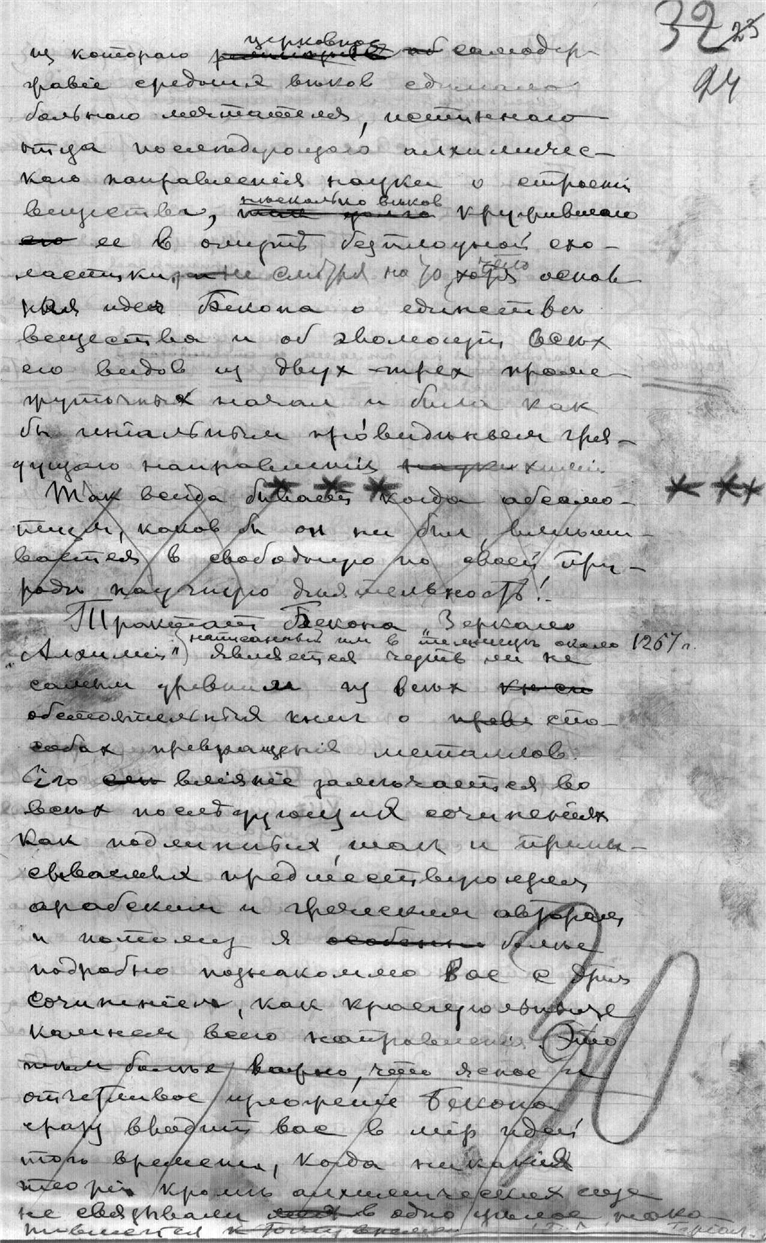 32 23
24
церковное
из которого самодер-
жавіе среднихъ вѣков сдѣлало
больного мечтателя, истиннаго
отца послѣдующаго алхимичес-
каго направленія науки о строеніи
нѣсколько вѣков
вещества, кружившаго
его ее в омутѣ безплодной схо-
ластики, не смотря на то, что основ
ная идея Бекона о единствѣ
вещества и об эволюціи всѣх
его видов из двух-трех проме-
жуточных начал и была как
бы геніальным провидѣньем гря-
дущаго направленія химіи.
Так всегда бывает когда абсолю-
тизм, каков бы он ни был, вмѣши-
вается в свободную по своей при-
родѣ научную дѣятельность!
Трактат Бекона "Зеркало
написанный им в темницѣ около 1267 г.
Алхиміи") является чуть ли не
самым древним из всѣх
обстоятельных книг о спо-
собах превращенія металлов.
Его вліяніе замѣчается во
всѣх послѣдующих сочиненіях
как подлинных, так и припи-
сываемых предшествующим
арабским и греческим авторам
и потому я особенно болѣе
подробно познакомлю Вас с этим
сочиненіем, как краеугольным
камнем всего направленія. Это
тѣм болѣе важно, что ясное и
отчетливое изложеніе Бекона
сразу вводит вас в мір идей
того времени, когда никакія
теоріи кромѣ алхимических еще
не связывали в одно цѣлое
30